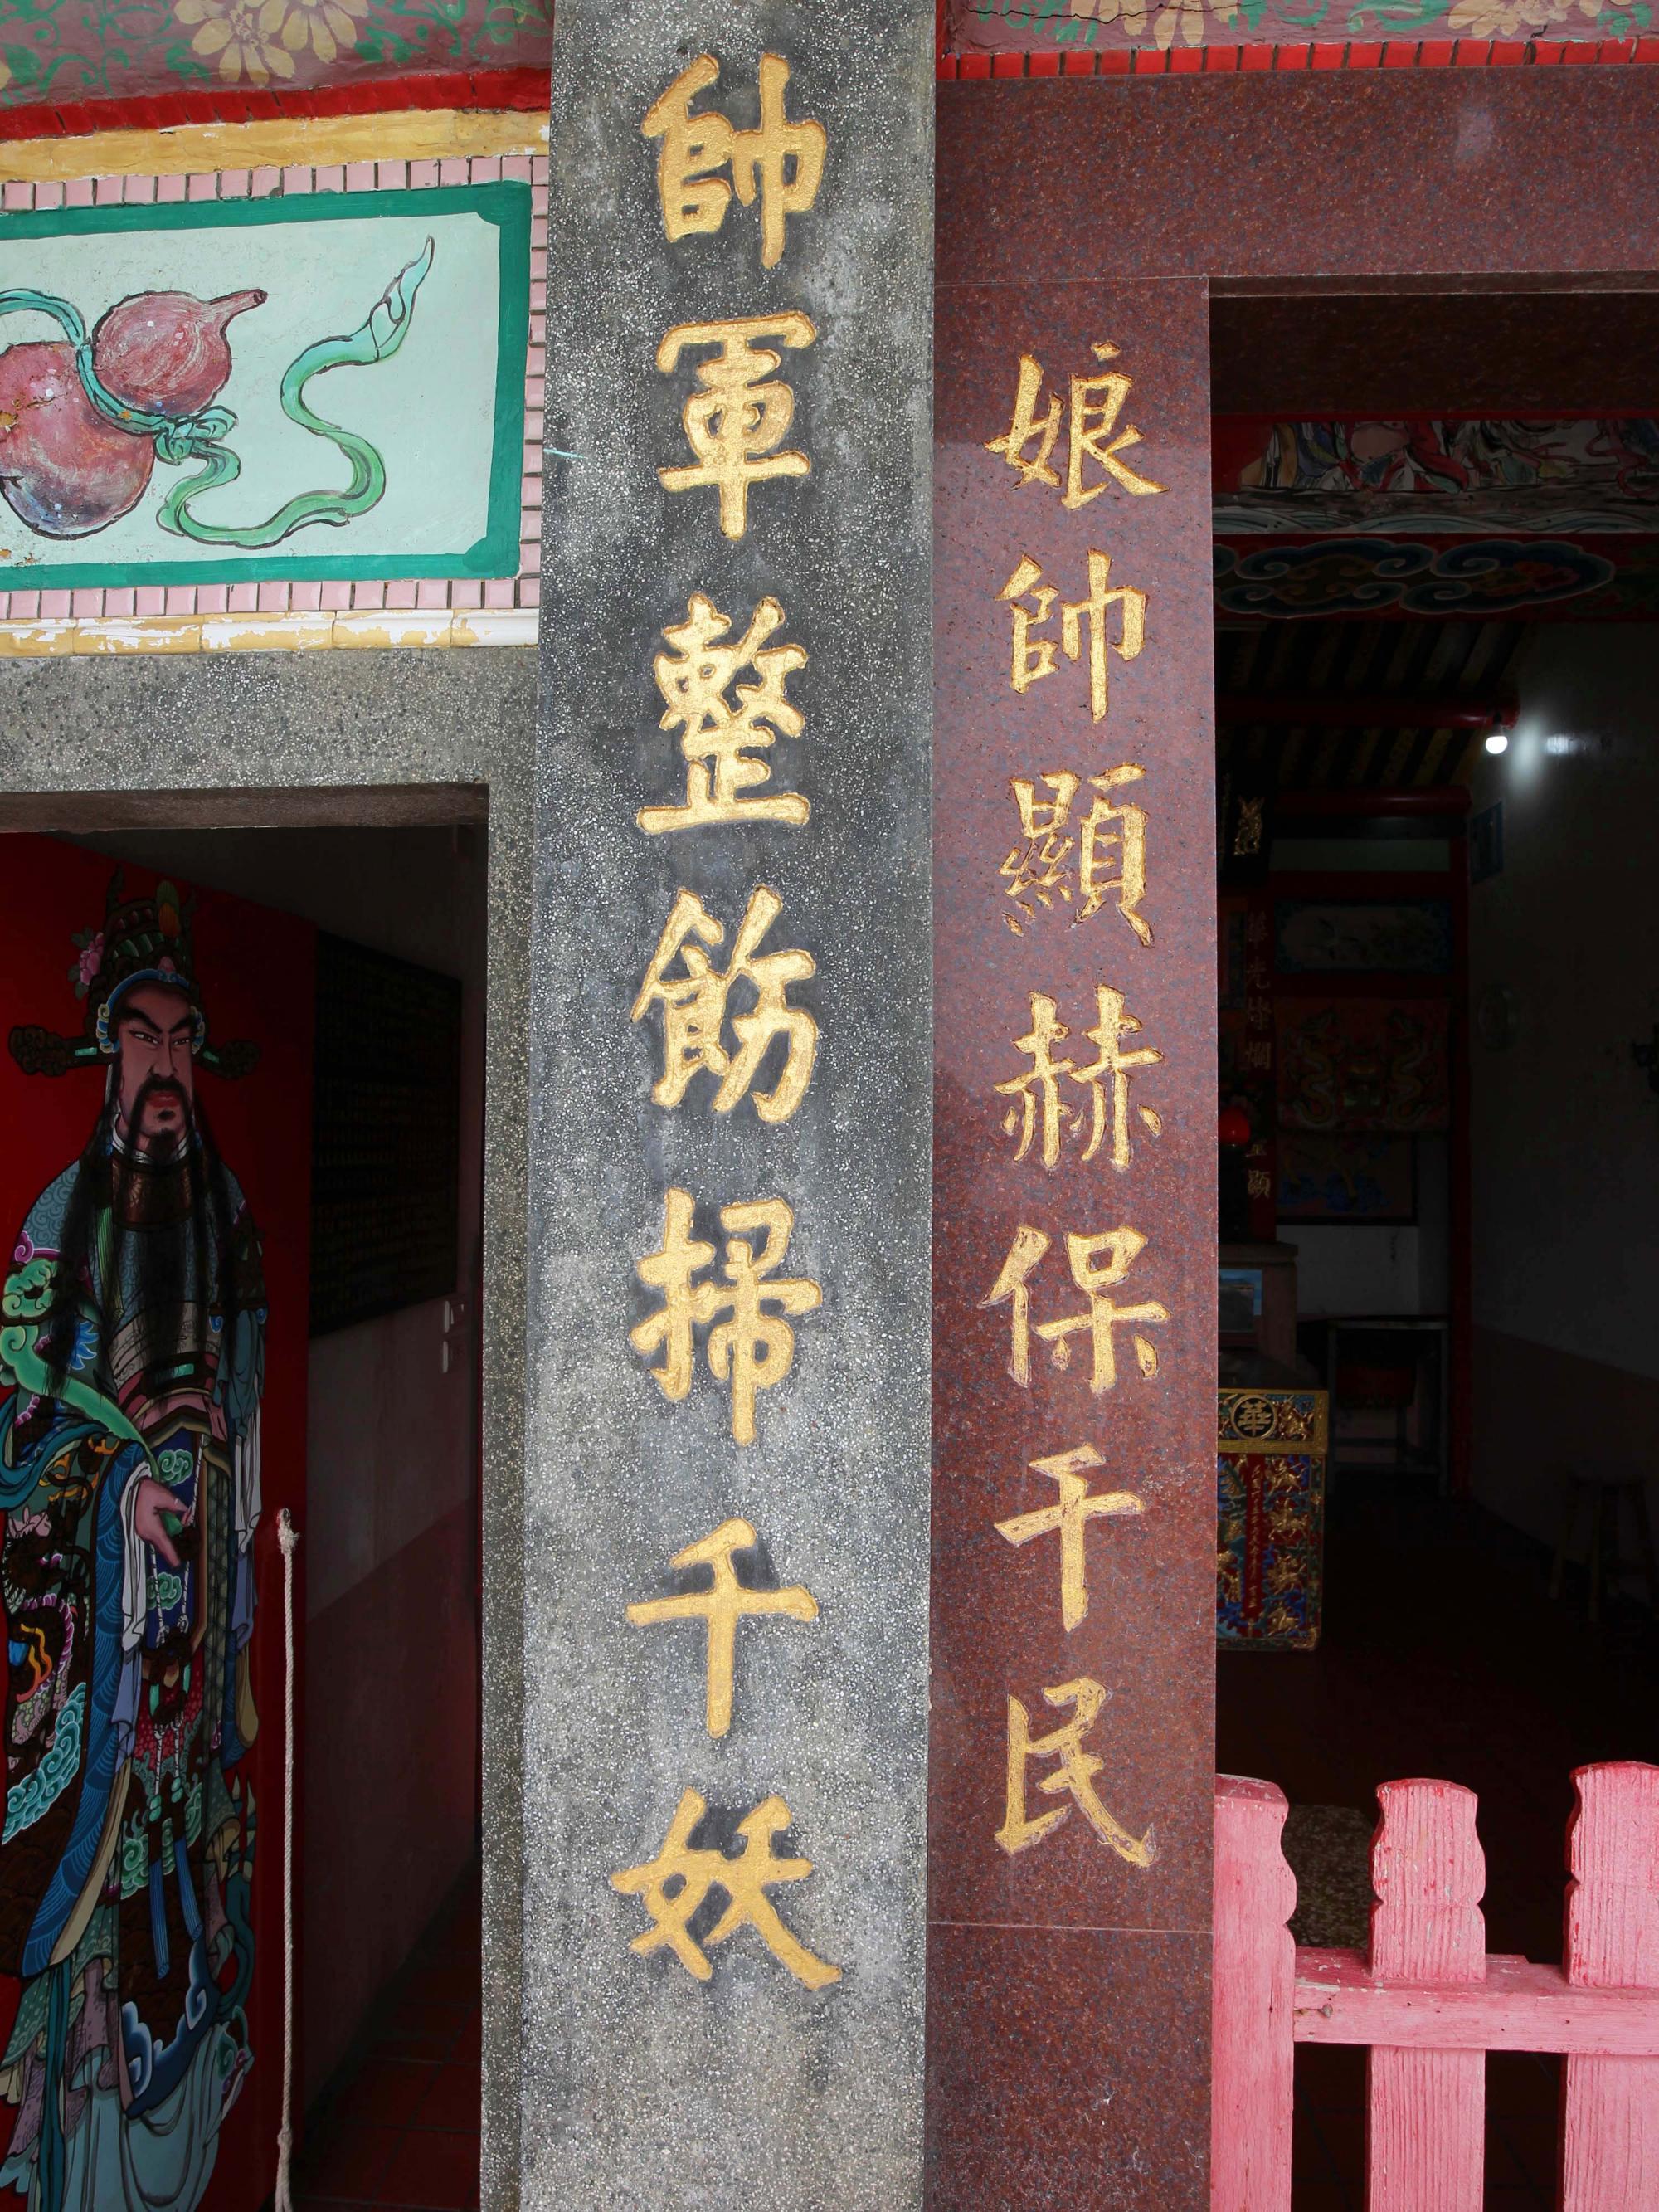 華
娘帥顯赫保千民
帥軍整飭掃千妖